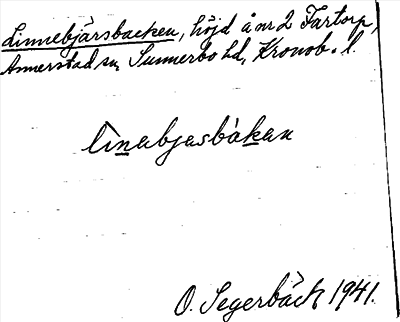 Linnebjärsbacken, höjd å nr 2 Fartorp,
Annerstad sn, Sunnerbo hd, Kronob. l.
linabjasbàkan
O. Segerbäck 1941.